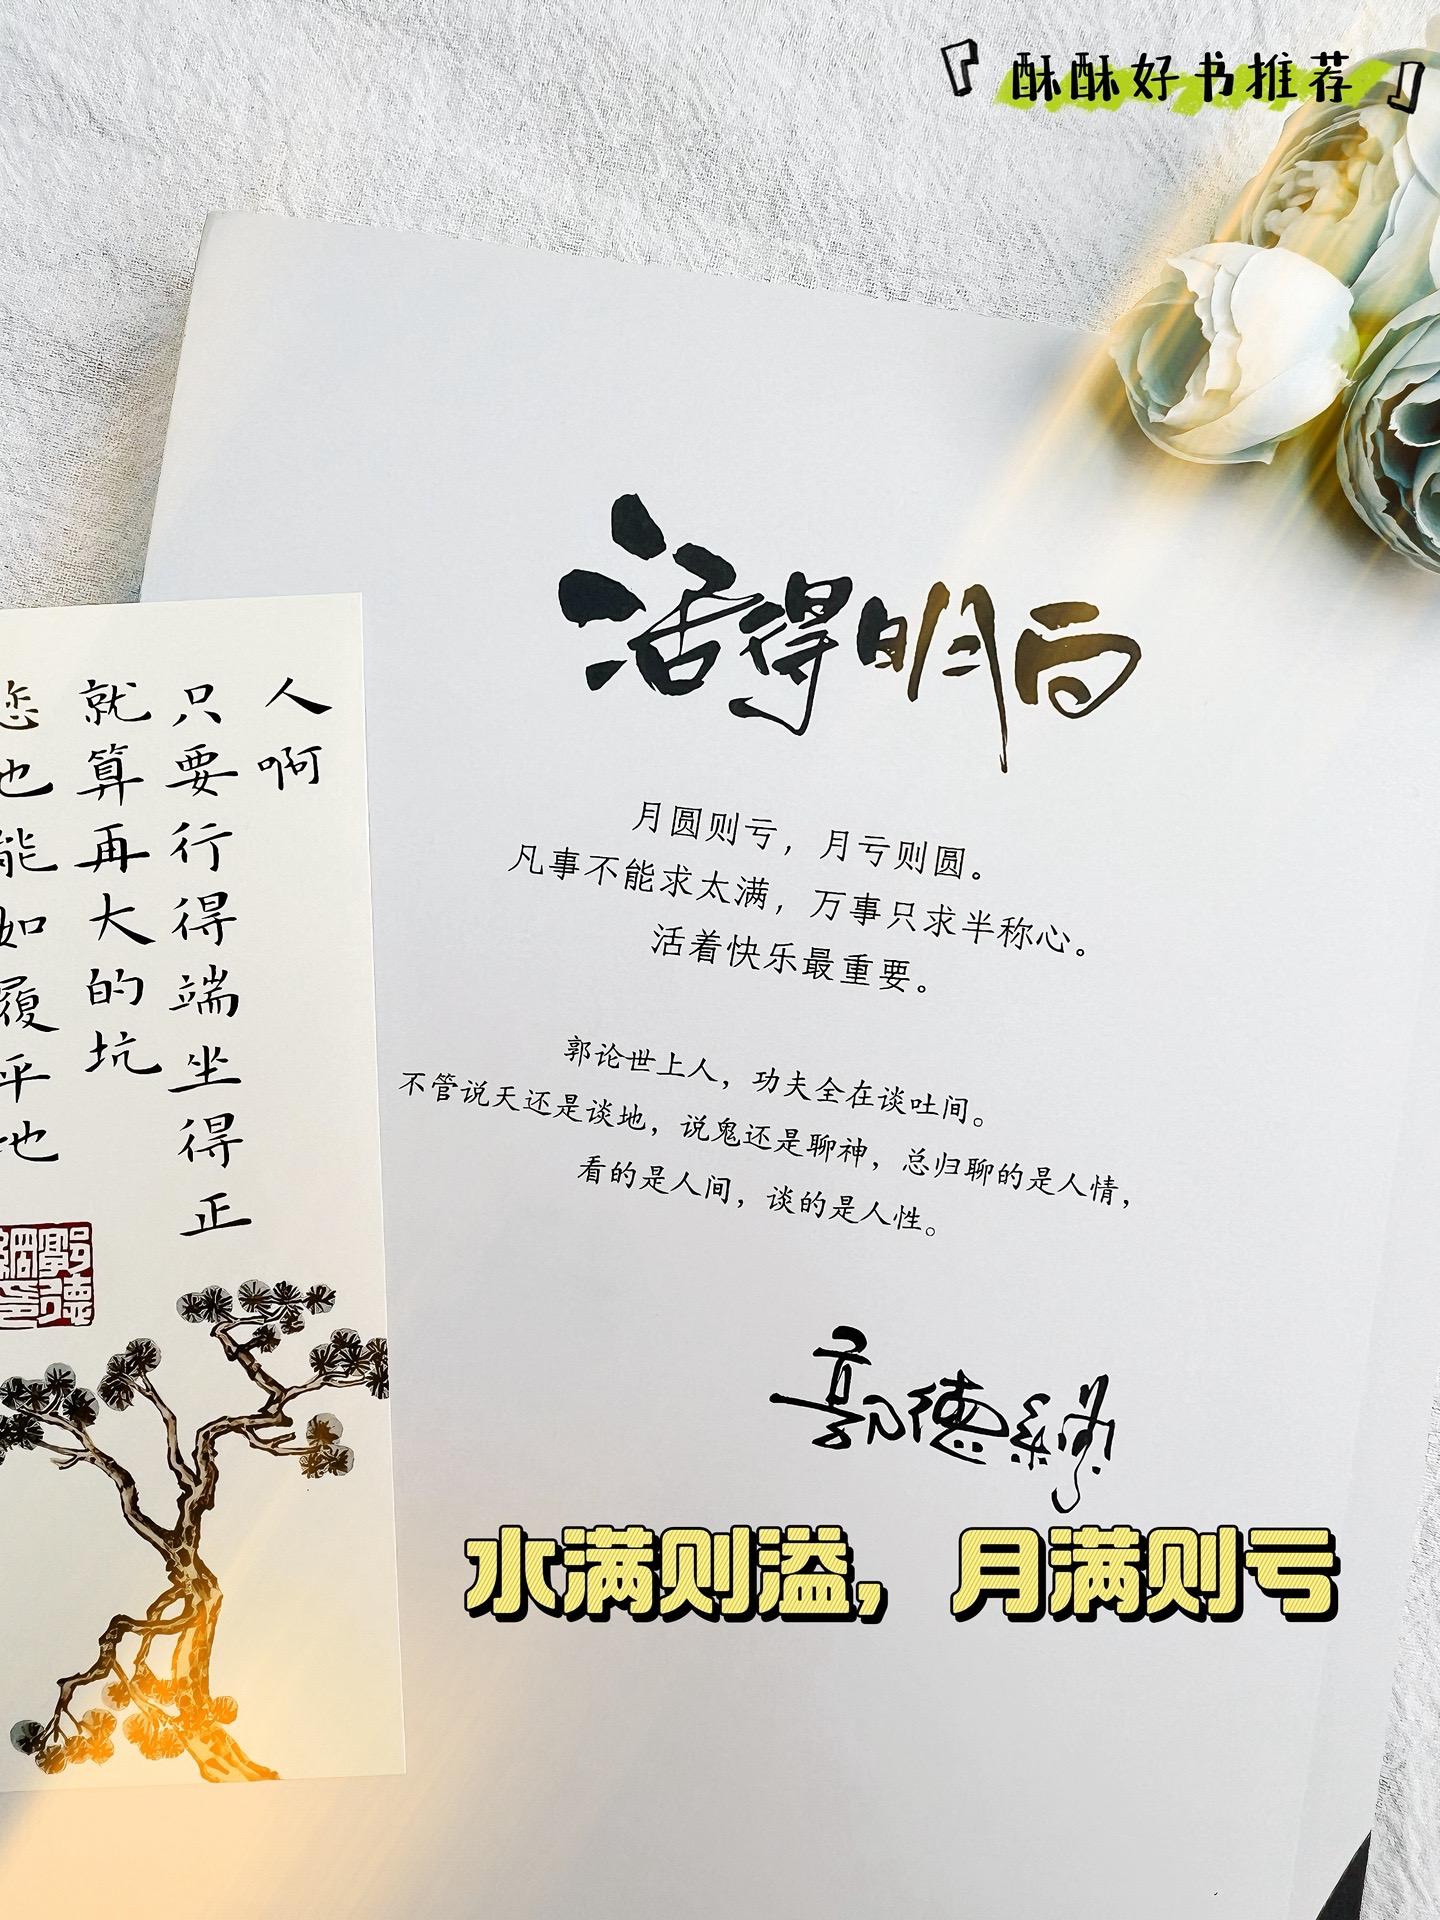 『酥酥好书推荐』
活得明白
月圆则亏，月亏则圆。
凡事不能求太满，万事只求半称心。
活着快乐最重要。
郭论世上人，功夫全在谈吐间。
不管说天还是谈地，说鬼还是聊神，总归聊的是人情，
看的是人间，谈的是人性。
郭德纲
水满则溢，月满则亏
人啊
只要行得端坐得正
就算再大的坑
您也能如履平地
郭德纲印